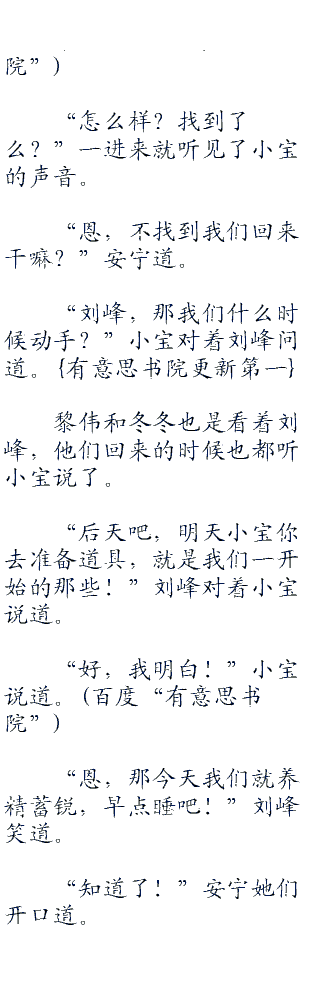 院”)
“怎么样？找到了
么？”一进来就听见了小宝
的声音。
“恩，不找到我们回来
干嘛？”安宁道。
“刘峰，那我们什么时
候动手？”小宝对着刘峰问
道。{有意思书院更新第一}
黎伟和冬冬也是看着刘
峰，他们回来的时候也都听
小宝说了。
“后天吧，明天小宝你
去准备道具，就是我们一开
始的那些！”刘峰对着小宝
说道。
“好，我明白！”小宝
说道。(百度“有意思书
院”)
“恩，那今天我们就养
精蓄锐，早点睡吧！”刘峰
笑道。
“知道了！”安宁她们
开口道。